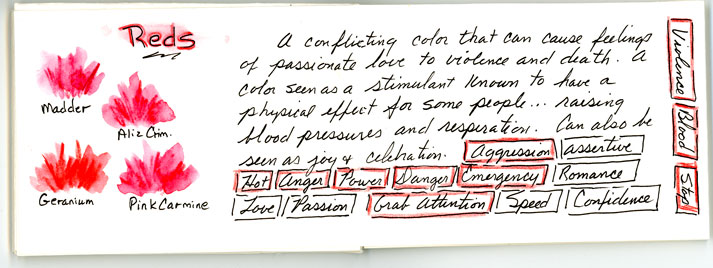 Reds
Madder
Aliz Crim.
Geranium
Pink Carmine
A conflicting color that can cause feelings
of passionate love to violence and death. A
color seen as a stimulant known to have a
physical effect for some people... raising
blood pressures and respiration. Can also be
seen as joy & celebration. Aggression assertive
Hot Anger Power Danger Emergency Romance
Love Passion Grab Attention Speed Confidence
Violence Blood Stop